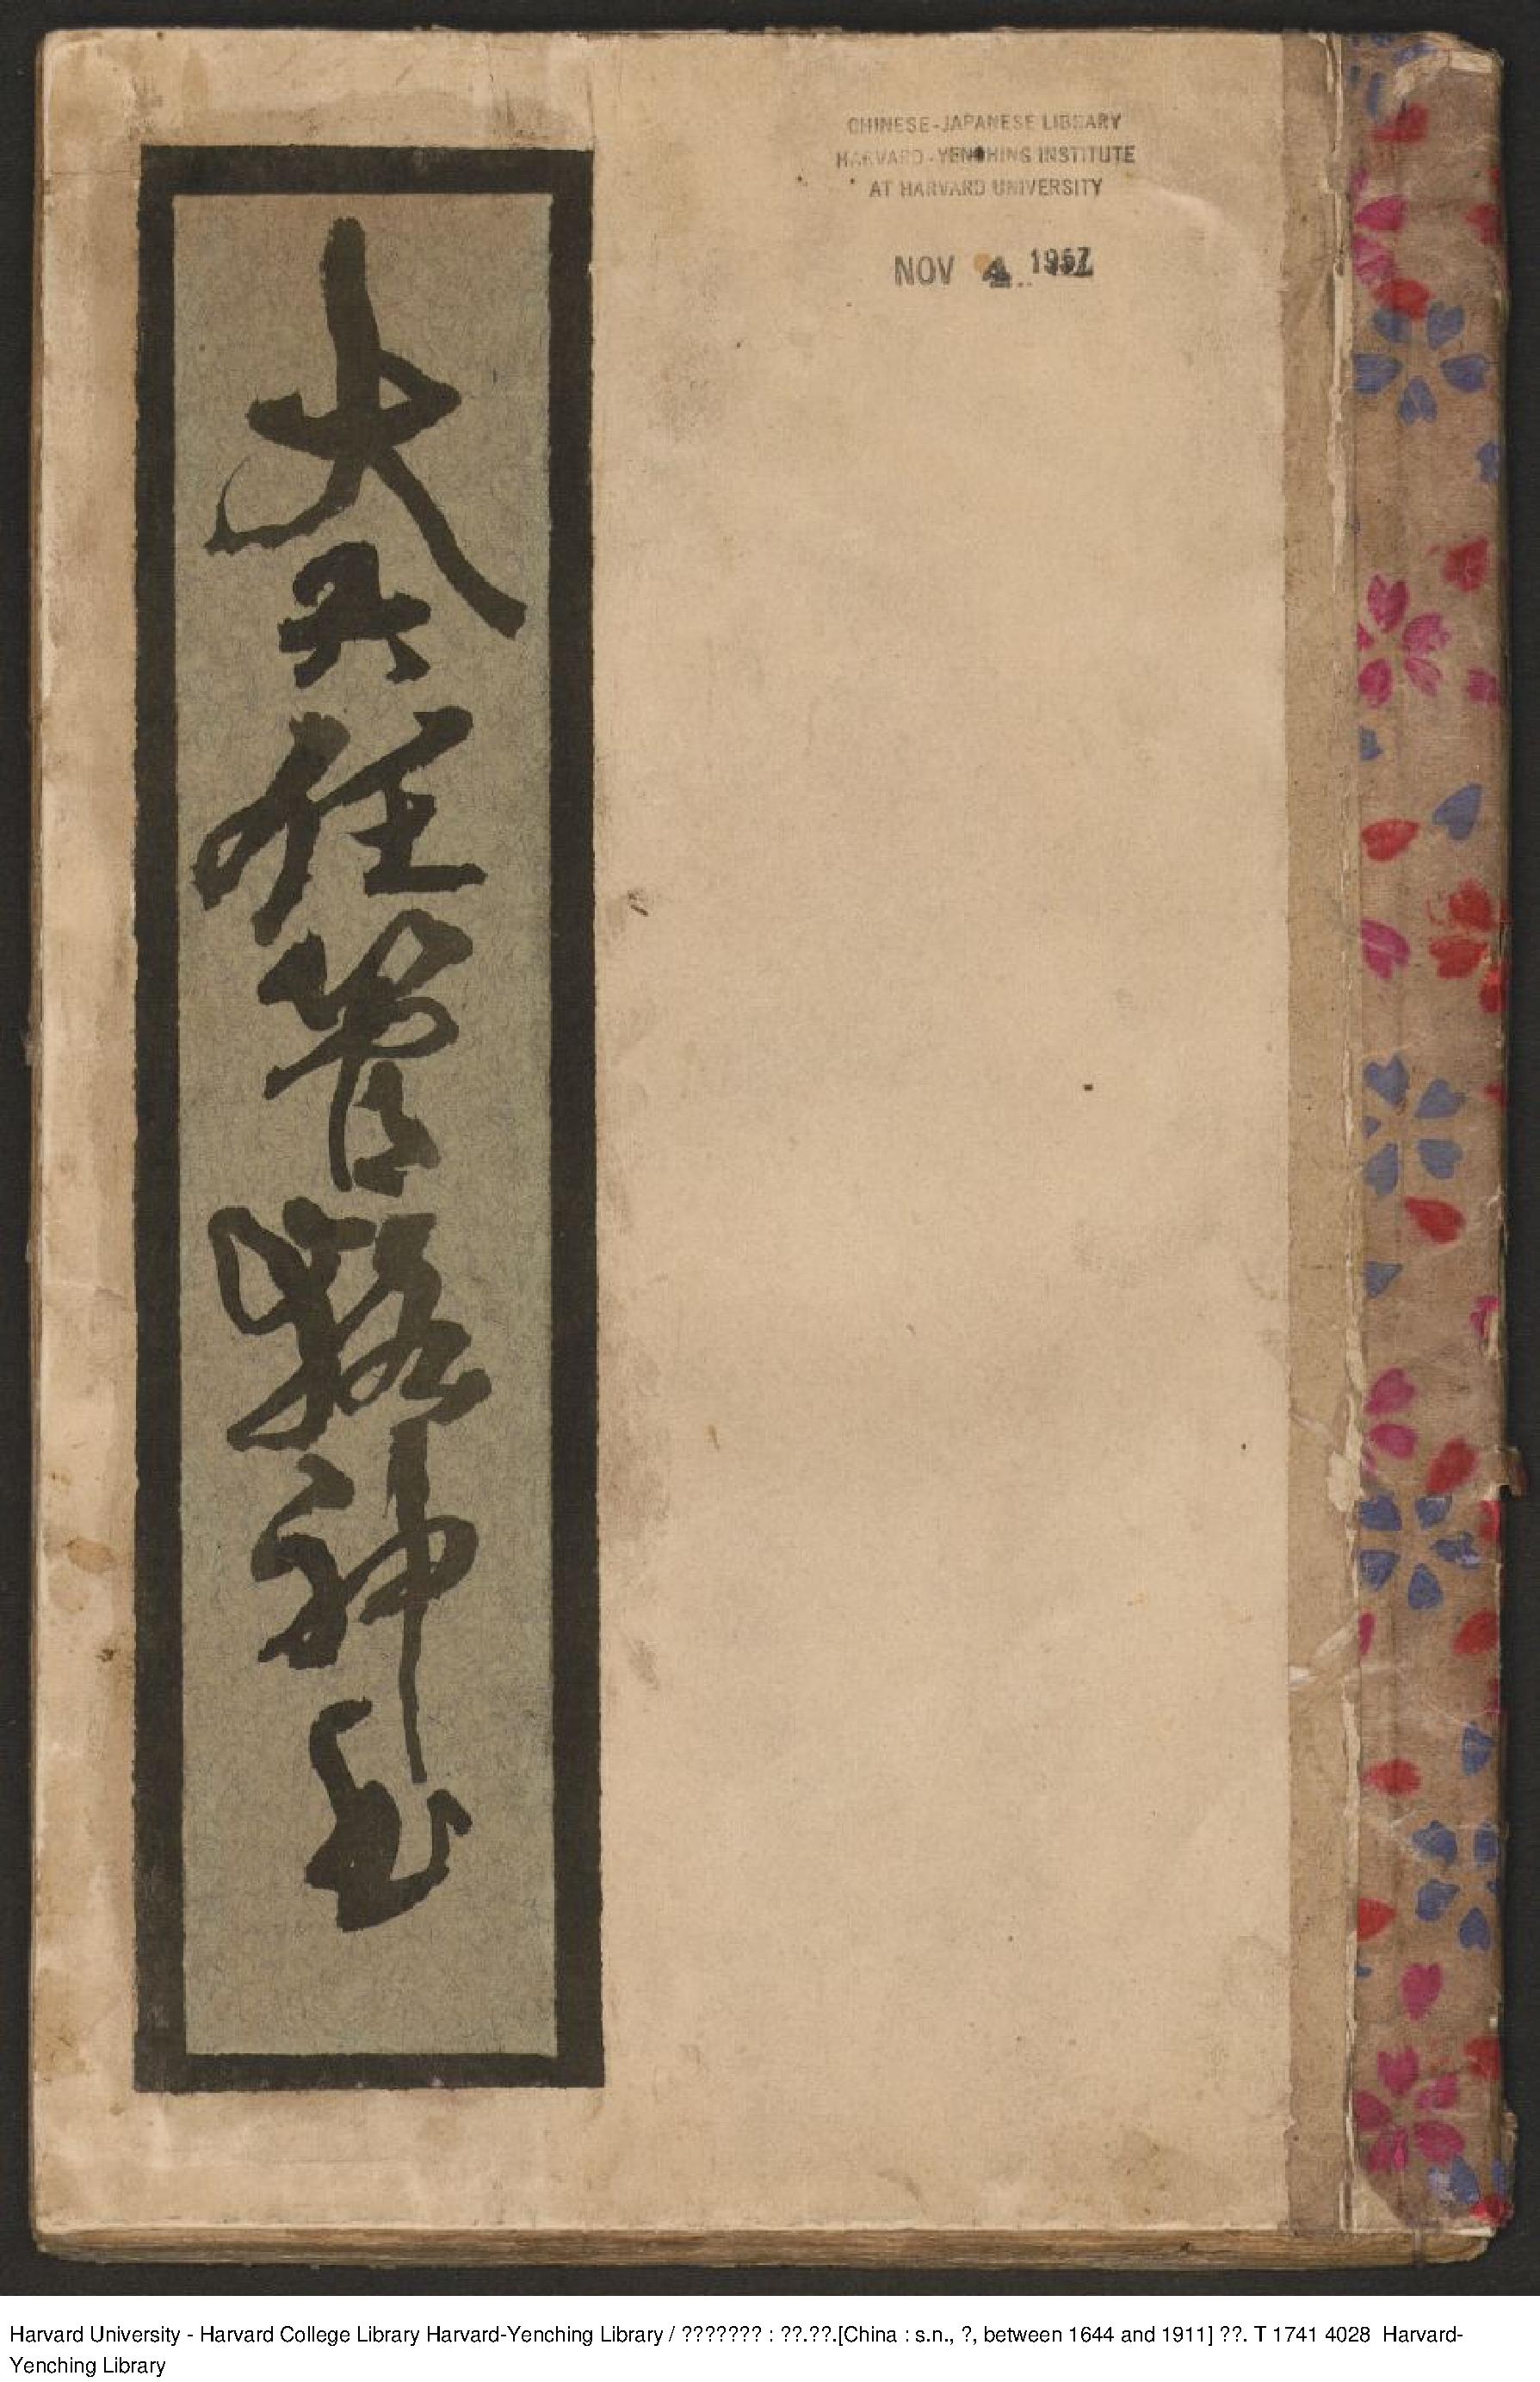 CHINESE-JAPANESE LIBRARY
HARVARD-YENCHING INSTITUTE
AT HARVARD UNIVERSITY
NOV 4 1957
大六任管輅神書
Harvard University - Harvard College Library Harvard-Yenching Library / ??????? : ??.??.[China : s.n., ?, between 1644 and 1911] ??. T 1741 4028 Harvard-
Yenching Library